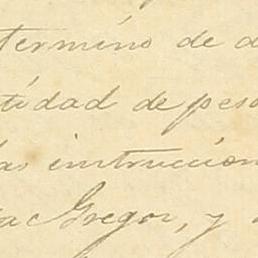 termino de d
tidad de peso
las instruccion
ac Gregor, y